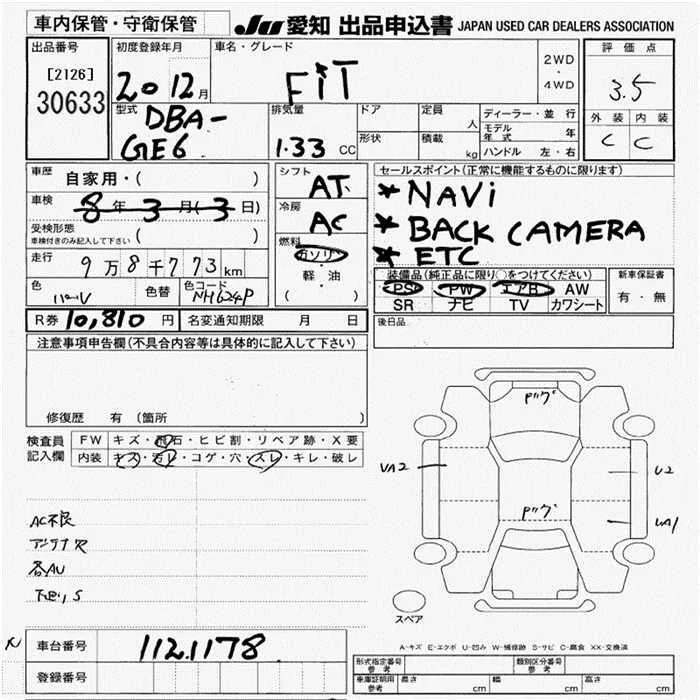 車内保管・守衛保管 JU 愛知 出品申込書 JAPAN USED CAR DEALERS ASSOCIATION
出品番号 初度登録年月 車名・グレード 評価点
[2126] 20 12月 FiT 2WD・4WD 3.5
30633
型式 DBA-GE6 排気量 1.33 CC ドア 定員 人 ディーラー・並行
形状 積載 kg モデル年式 年
ハンドル 左・右
外装 内装
C C
車歴 自家用・( )
車検 8年3月(3日)
受検形態 ( )
車検付きのみ記入して下さい
走行 9万8千773km
色 色替 色コード NH624P
シフト AT
冷房 AC
燃料 ガソリン
軽・油
( )
セールスポイント(正常に機能するものに限ります)
* NAVi
* BACK CAMERA
* ETC
装備品(純正品に限り○をつけてください) 新車保証書
PS PW エアB AW 有・無
SR ナビ TV カワシート
後日品
R券 10,810円 名変通知期限 月 日
注意事項申告欄(不具合内容等は具体的に記入して下さい)
修復歴 有 (箇所 )
検査員記入欄 FW キズ・飛石・ヒビ割・リペア跡・X要
内装 キズ・汚レ・コゲ・穴・スレ・キレ・破レ
AC不良
アンテナ欠
各AU
下廻りS
UA2
U2
UA1
スペア
A-キズ E-エクボ U-凹み W-補修跡 S-サビ C-腐食 XX-交換済
車台番号 1121178
登録番号
形式指定番号 参考 類別区分番号 参考
車庫証明用 参考 長さ cm 幅 cm 高さ cm